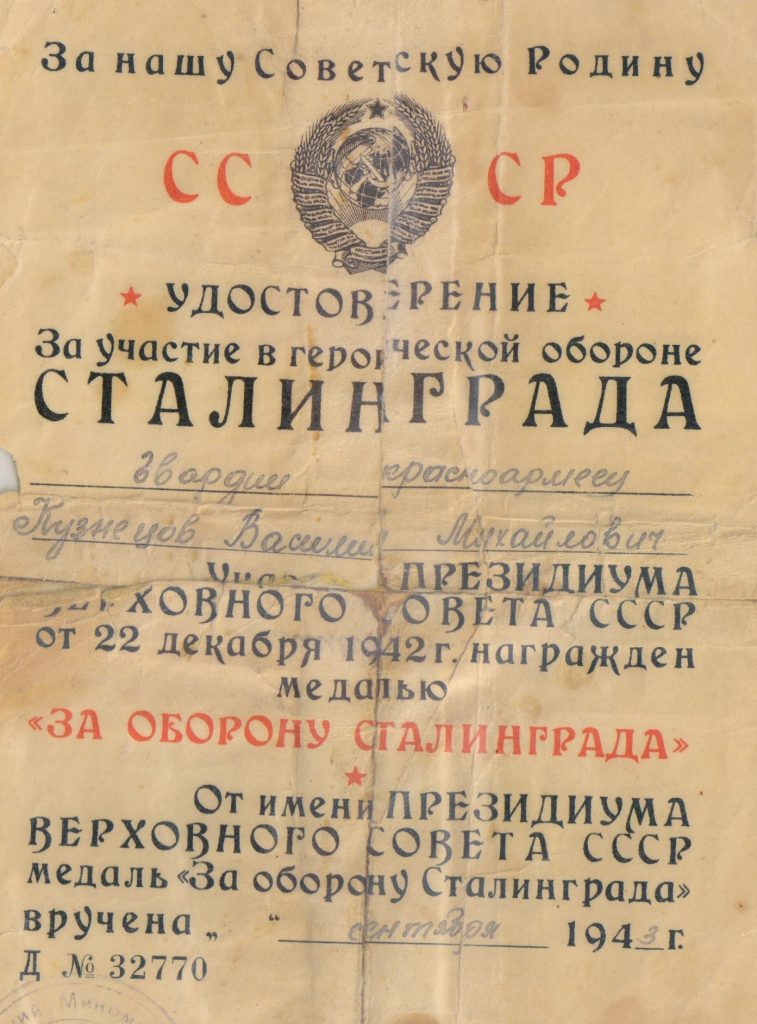 За нашу Советскую Родину
СССР
УДОСТОВЕРЕНИЕ
За участие в героической обороне
СТАЛИНГРАДА
гвардии красноармеец
Кузнецов Василий Михайлович
Указом ПРЕЗИДИУМА
ВЕРХОВНОГО СОВЕТА СССР
от 22 декабря 1942 г. награжден
медалью
«ЗА ОБОРОНУ СТАЛИНГРАДА»
От имени ПРЕЗИДИУМА
ВЕРХОВНОГО СОВЕТА СССР
медаль «За оборону Сталинграда»
вручена „ “ сентября 1943 г.
Д № 32770